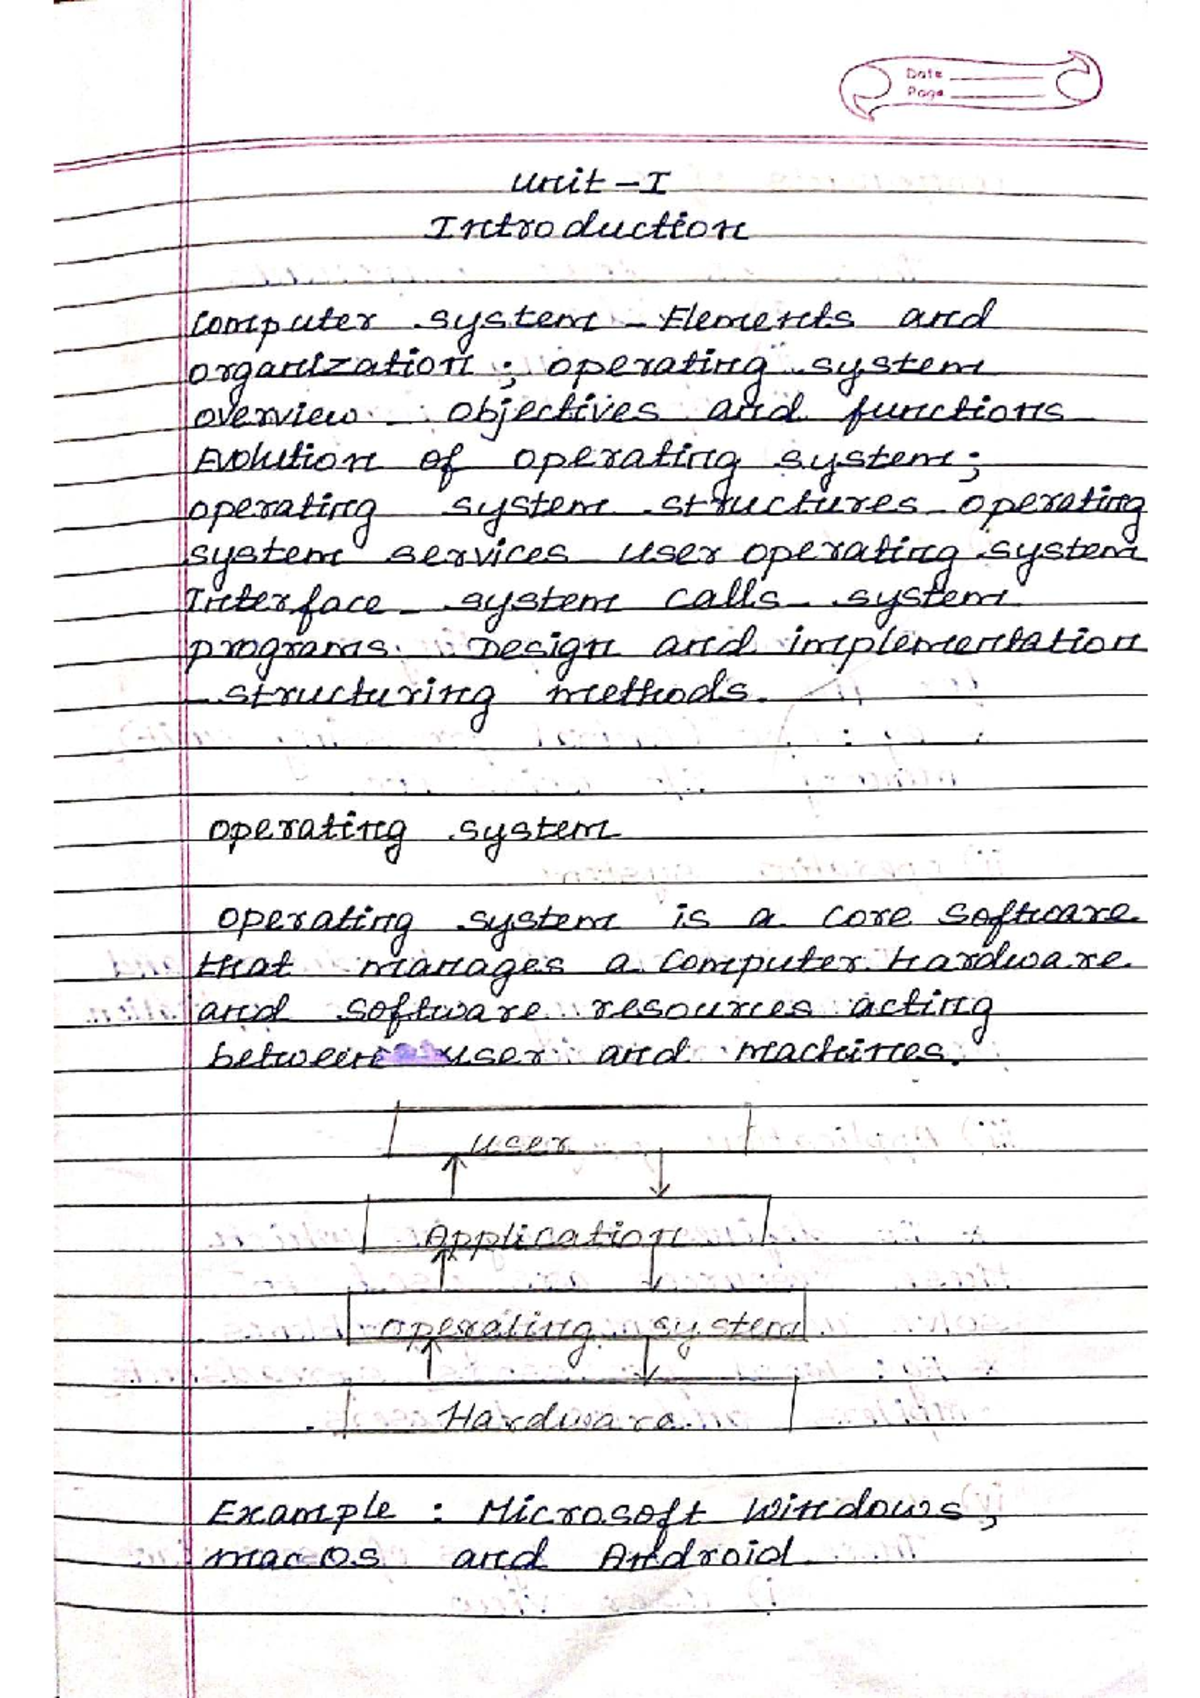 Date
Page
Unit - I
Introduction
Computer system - Elements and
organization ; operating system
overview - objectives and functions
Evolution of operating system ;
operating system structures - operating
system services - user operating system
Interface - system calls - system
programs. Design and implementation
- structuring methods.
operating system
operating system is a core software
that manages a computer hardware
and software resources acting
between user and machines.
user
Application
operating system
Hardware
Example : Microsoft Windows,
mac OS and Android.